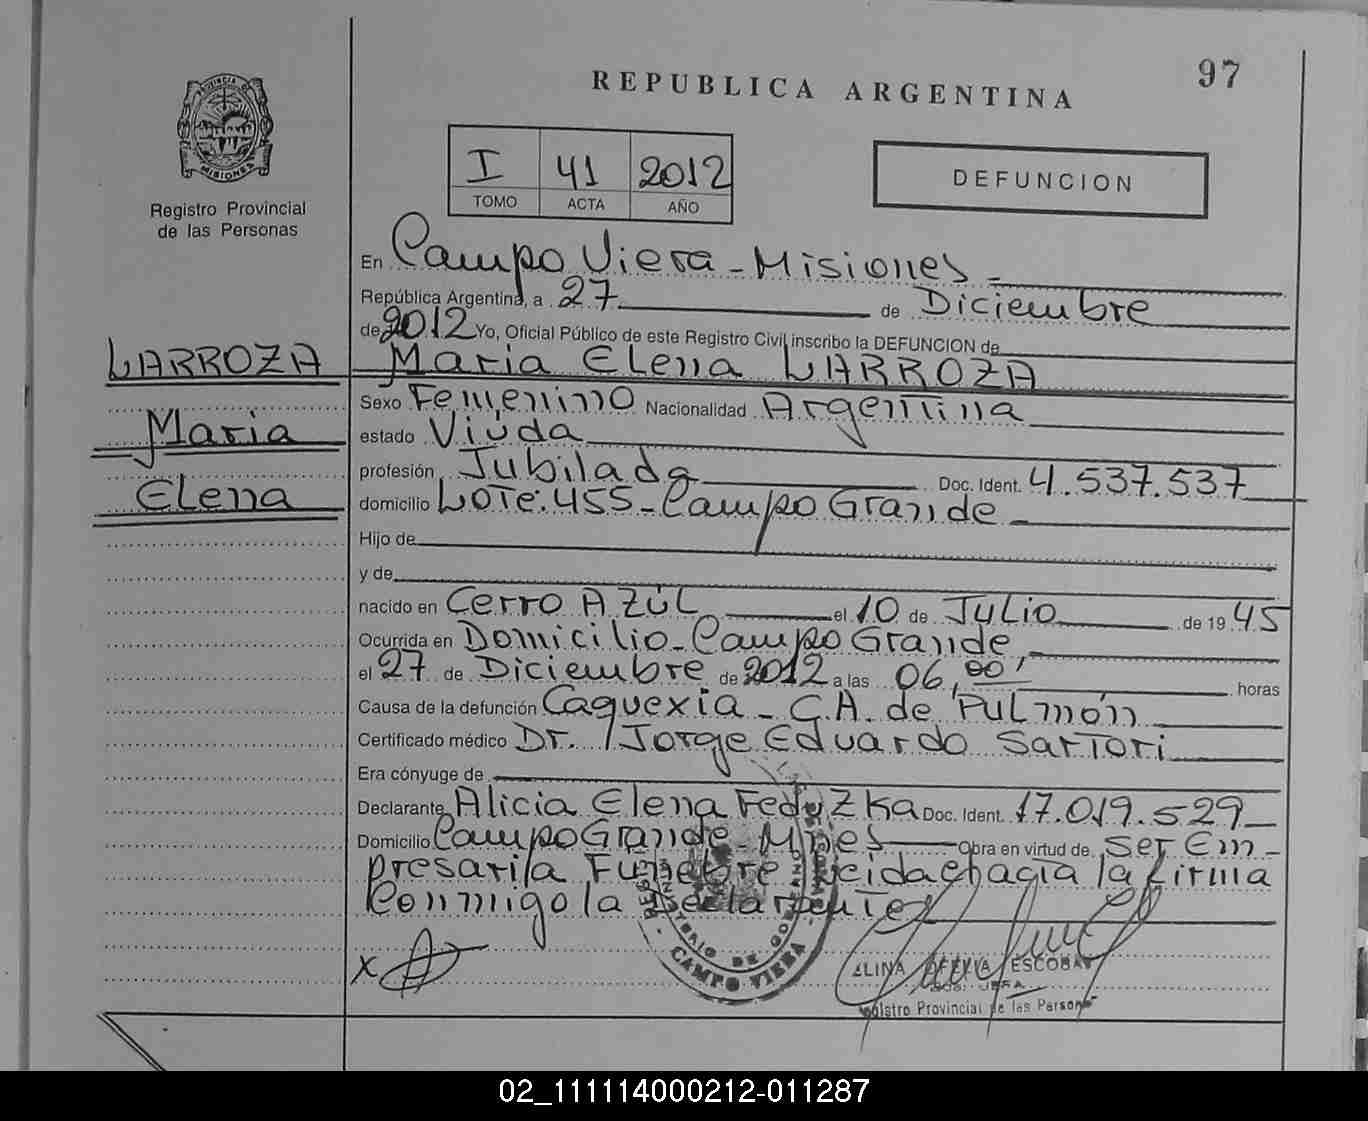 97
REPUBLICA ARGENTINA
PROVINCIA DE
MISIONES
Registro Provincial
de las Personas
I 41 2012
TOMO ACTA AÑO
DEFUNCION
En Campo Viera - Misiones
República Argentina, a 27 de Diciembre
de 2012 Yo, Oficial Público de este Registro Civil inscribo la DEFUNCION de
LARROZA
Maria
Elena
Maria Elena LARROZA
Sexo Femenino Nacionalidad Argentina
estado Viuda
profesión Jubilada Doc. Ident. 4.537.537
domicilio Lote: 455 - Campo Grande -
Hijo de
y de
nacido en Cerro Azúl el 10 de Julio de 1945
Ocurrida en Domicilio - Campo Grande
el 27 de Diciembre de 2012 a las 06,00' horas
Causa de la defunción Caquexia - C.A. de Pulmón
Certificado médico Dr. Jorge Eduardo Sartori
Era cónyuge de
Declarante Alicia Elena Feduzka Doc. Ident. 17.019.529
Domicilio Campo Grande - Mnes Obra en virtud de ser Em-
presaria Funebre Leida el acta la firma
Conmigo la Declarante
X
CAMPO VIERA
OFELIA ESCOBAR
Registro Provincial de las Personas
02_111114000212-011287